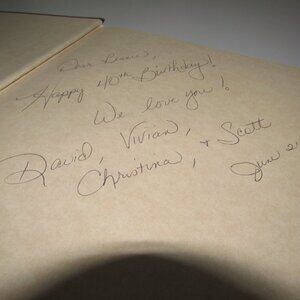 Happy 40th Birthday!
We love you!
David, Vivian,
Christina, & Scott
June